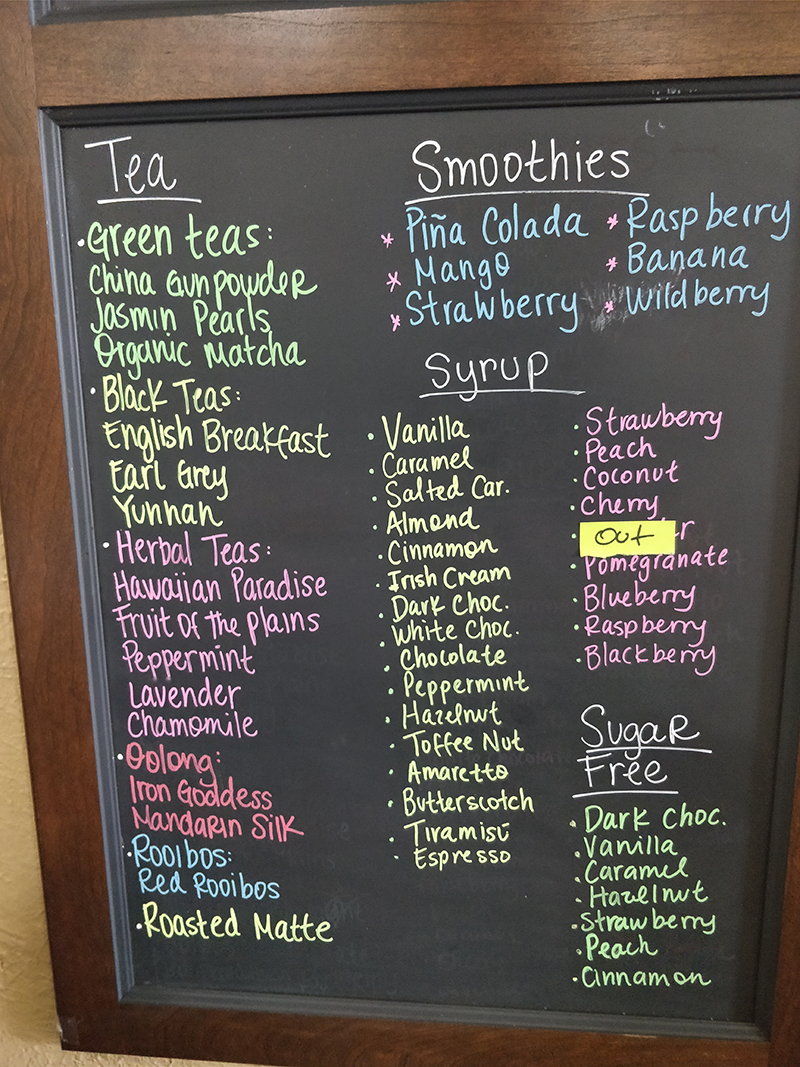 Tea
Green teas:
China Gunpowder
Jasmin Pearls
Organic Matcha
Black Teas:
English Breakfast
Earl Grey
Yunnan
Herbal Teas:
Hawaiian Paradise
Fruit of the plains
Peppermint
Lavender
Chamomile
Oolong:
Iron Goddess
Mandarin Silk
Rooibos:
Red Rooibos
Roasted Matte
Smoothies
Piña Colada
Mango
Strawberry
Raspberry
Banana
Wildberry
Syrup
Vanilla
Caramel
Salted Car.
Almond
Cinnamon
Irish Cream
Dark Choc.
White Choc.
Chocolate
Peppermint
Hazelnut
Toffee Nut
Amaretto
Butterscotch
Tiramisu
Espresso
Strawberry
Peach
Coconut
Cherry
Out
Pomegranate
Blueberry
Raspberry
Blackberry
Sugar
Free
Dark Choc.
Vanilla
Caramel
Hazelnut
Strawberry
Peach
Cinnamon